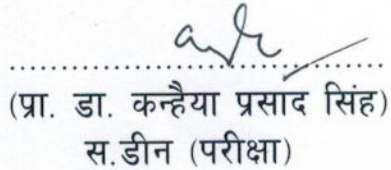 (प्रा. डा. कन्हैया प्रसाद सिंह)
स.डीन (परीक्षा)